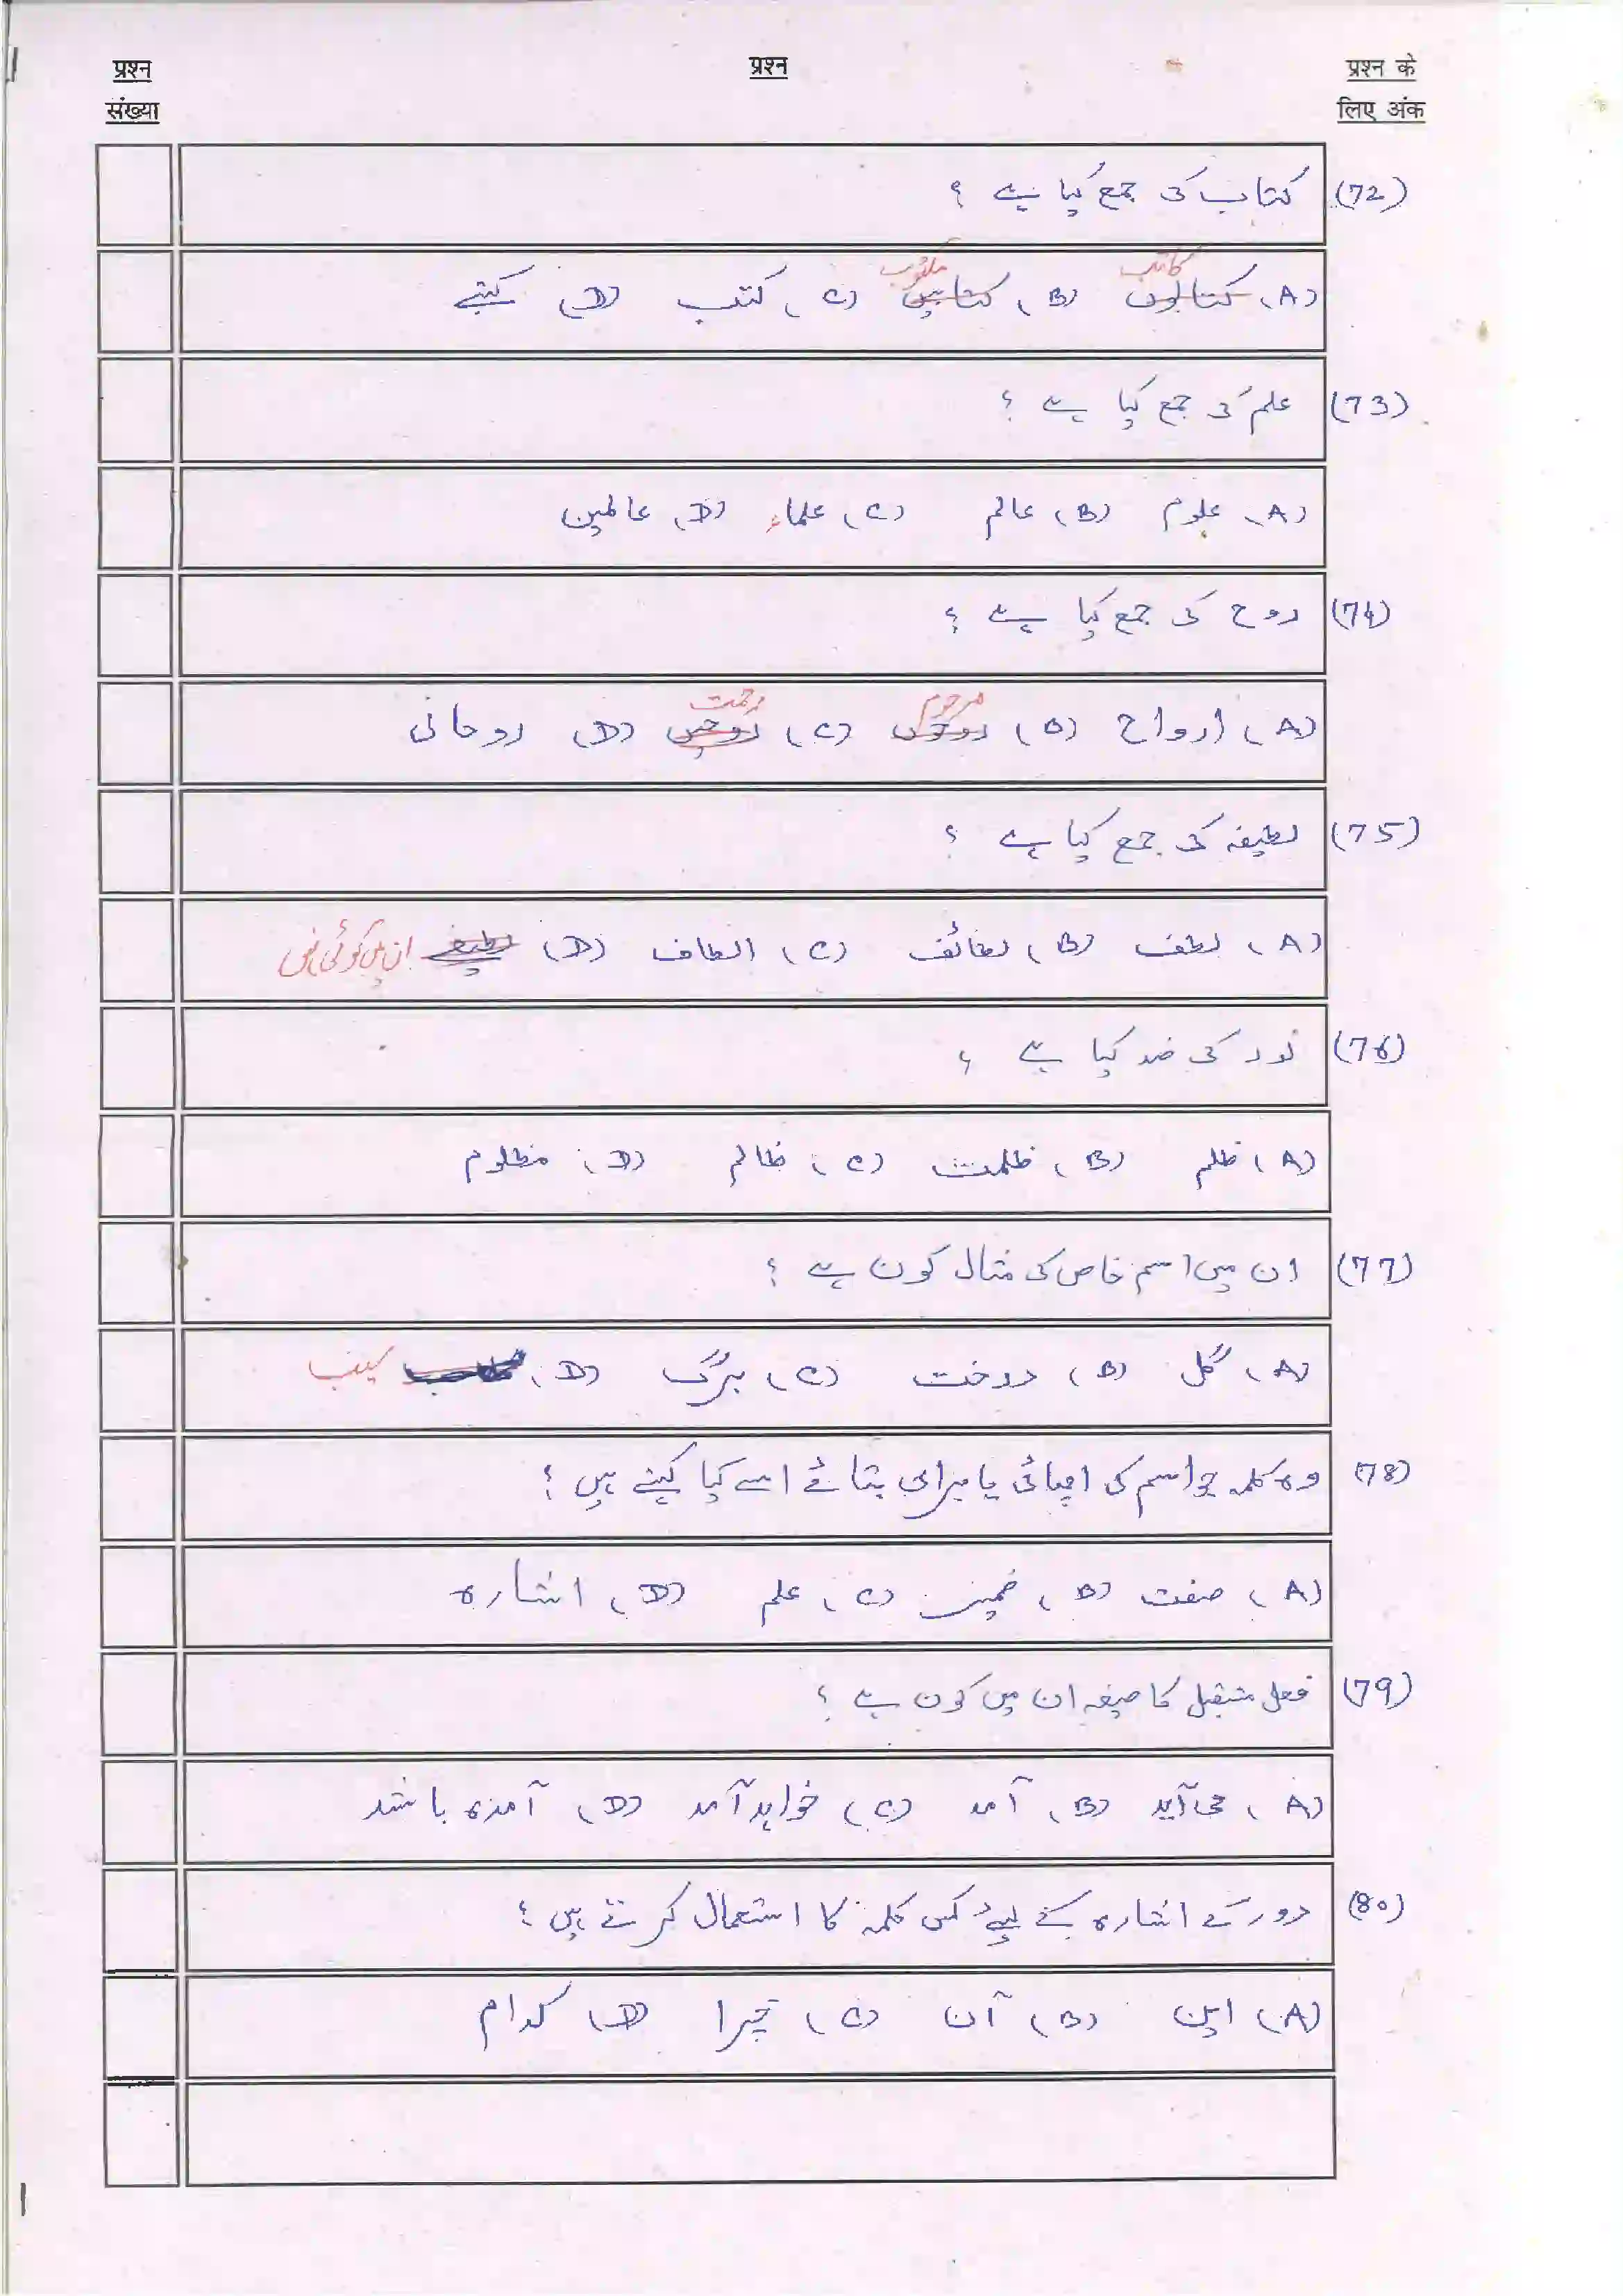 प्रश्न संख्या
प्रश्न
प्रश्न के लिए अंक
(72) کتاب کی جمع کیا ہے ؟
(A) کتابوں کاتب (B) کتابیں مکتوب (C) کتب (D) کتبے
(73) علم کی جمع کیا ہے ؟
(A) علوم (B) عالم (C) علماء (D) عالمین
(74) روح کی جمع کیا ہے ؟
(A) ارواح (B) روحوں مرحوم (C) روحیں رحمت (D) روحانی
(75) لطیفہ کی جمع کیا ہے ؟
(A) لطف (B) لطائف (C) الطاف (D) لطیفے ان میں کوئی نہیں
(76) نور کی ضد کیا ہے ؟
(A) ظلم (B) ظلمت (C) ظالم (D) مظلوم
(77) ان میں اسم خاص کی مثال کون ہے ؟
(A) گل (B) درخت (C) برگ (D) سیب
(78) وہ کلمہ جو اسم کی اچھائی یا برای بتائے اسے کیا کہتے ہیں ؟
(A) صفت (B) ضمیر (C) علم (D) اشارہ
(79) فعل مستقبل کا صیغہ ان میں کون ہے ؟
(A) می آید (B) آمد (C) خواہد آمد (D) آمدہ باشد
(80) دور کے اشارہ کے لیے کس کلمہ کا استعمال کرتے ہیں ؟
(A) این (B) آن (C) چرا (D) کدام